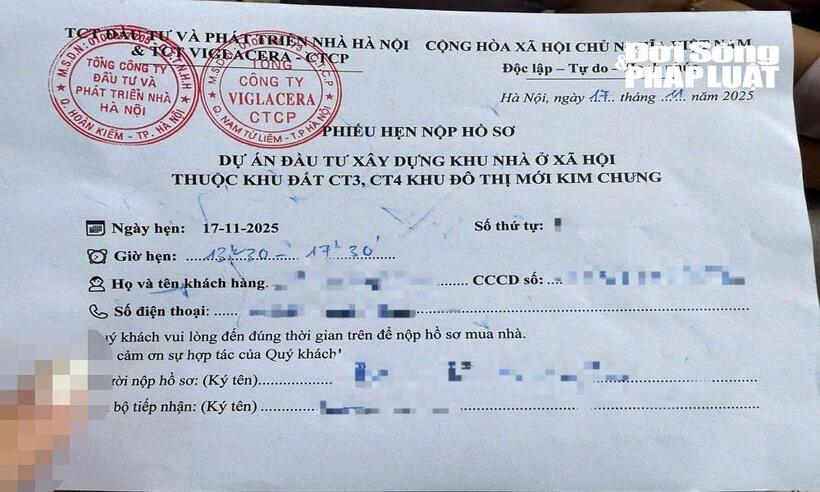 TCT ĐẦU TƯ VÀ PHÁT TRIỂN NHÀ HÀ NỘI
& TCT VIGLACERA - CTCP
CỘNG HÒA XÃ HỘI CHỦ NGHĨA VIỆT NAM
Độc lập – Tự do
Đời Sống
& PHÁP LUẬT
Hà Nội, ngày 17 tháng 11 năm 2025
TỔNG CÔNG TY
ĐẦU TƯ VÀ
PHÁT TRIỂN NHÀ
HÀ NỘI
Q. HOÀN KIẾM - TP. HÀ NỘI
TỔNG
CÔNG TY
VIGLACERA
CTCP
Q. NAM TỪ LIÊM - T.P HÀ NỘI
PHIẾU HẸN NỘP HỒ SƠ
DỰ ÁN ĐẦU TƯ XÂY DỰNG KHU NHÀ Ở XÃ HỘI
THUỘC KHU ĐẤT CT3, CT4 KHU ĐÔ THỊ MỚI KIM CHUNG
Ngày hẹn: 17-11-2025 Số thứ tự:
Giờ hẹn: 13h30 - 17h30
Họ và tên khách hàng CCCD số:
Số điện thoại:
quý khách vui lòng đến đúng thời gian trên để nộp hồ sơ mua nhà.
cảm ơn sự hợp tác của Quý khách
nộp hồ sơ: (Ký tên)
bộ tiếp nhận: (Ký tên)